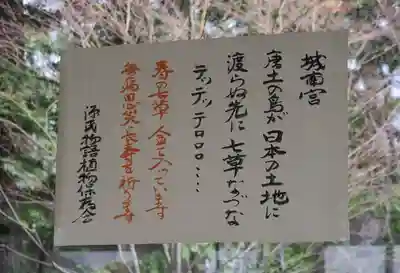 城南宮
唐土の鳥が日本の土地に
渡らぬ先に七草なづな
テッテッテロロロ・・・
春の七草 全て入っています
無病息災 長寿を祈ります
源氏物語植物保存会